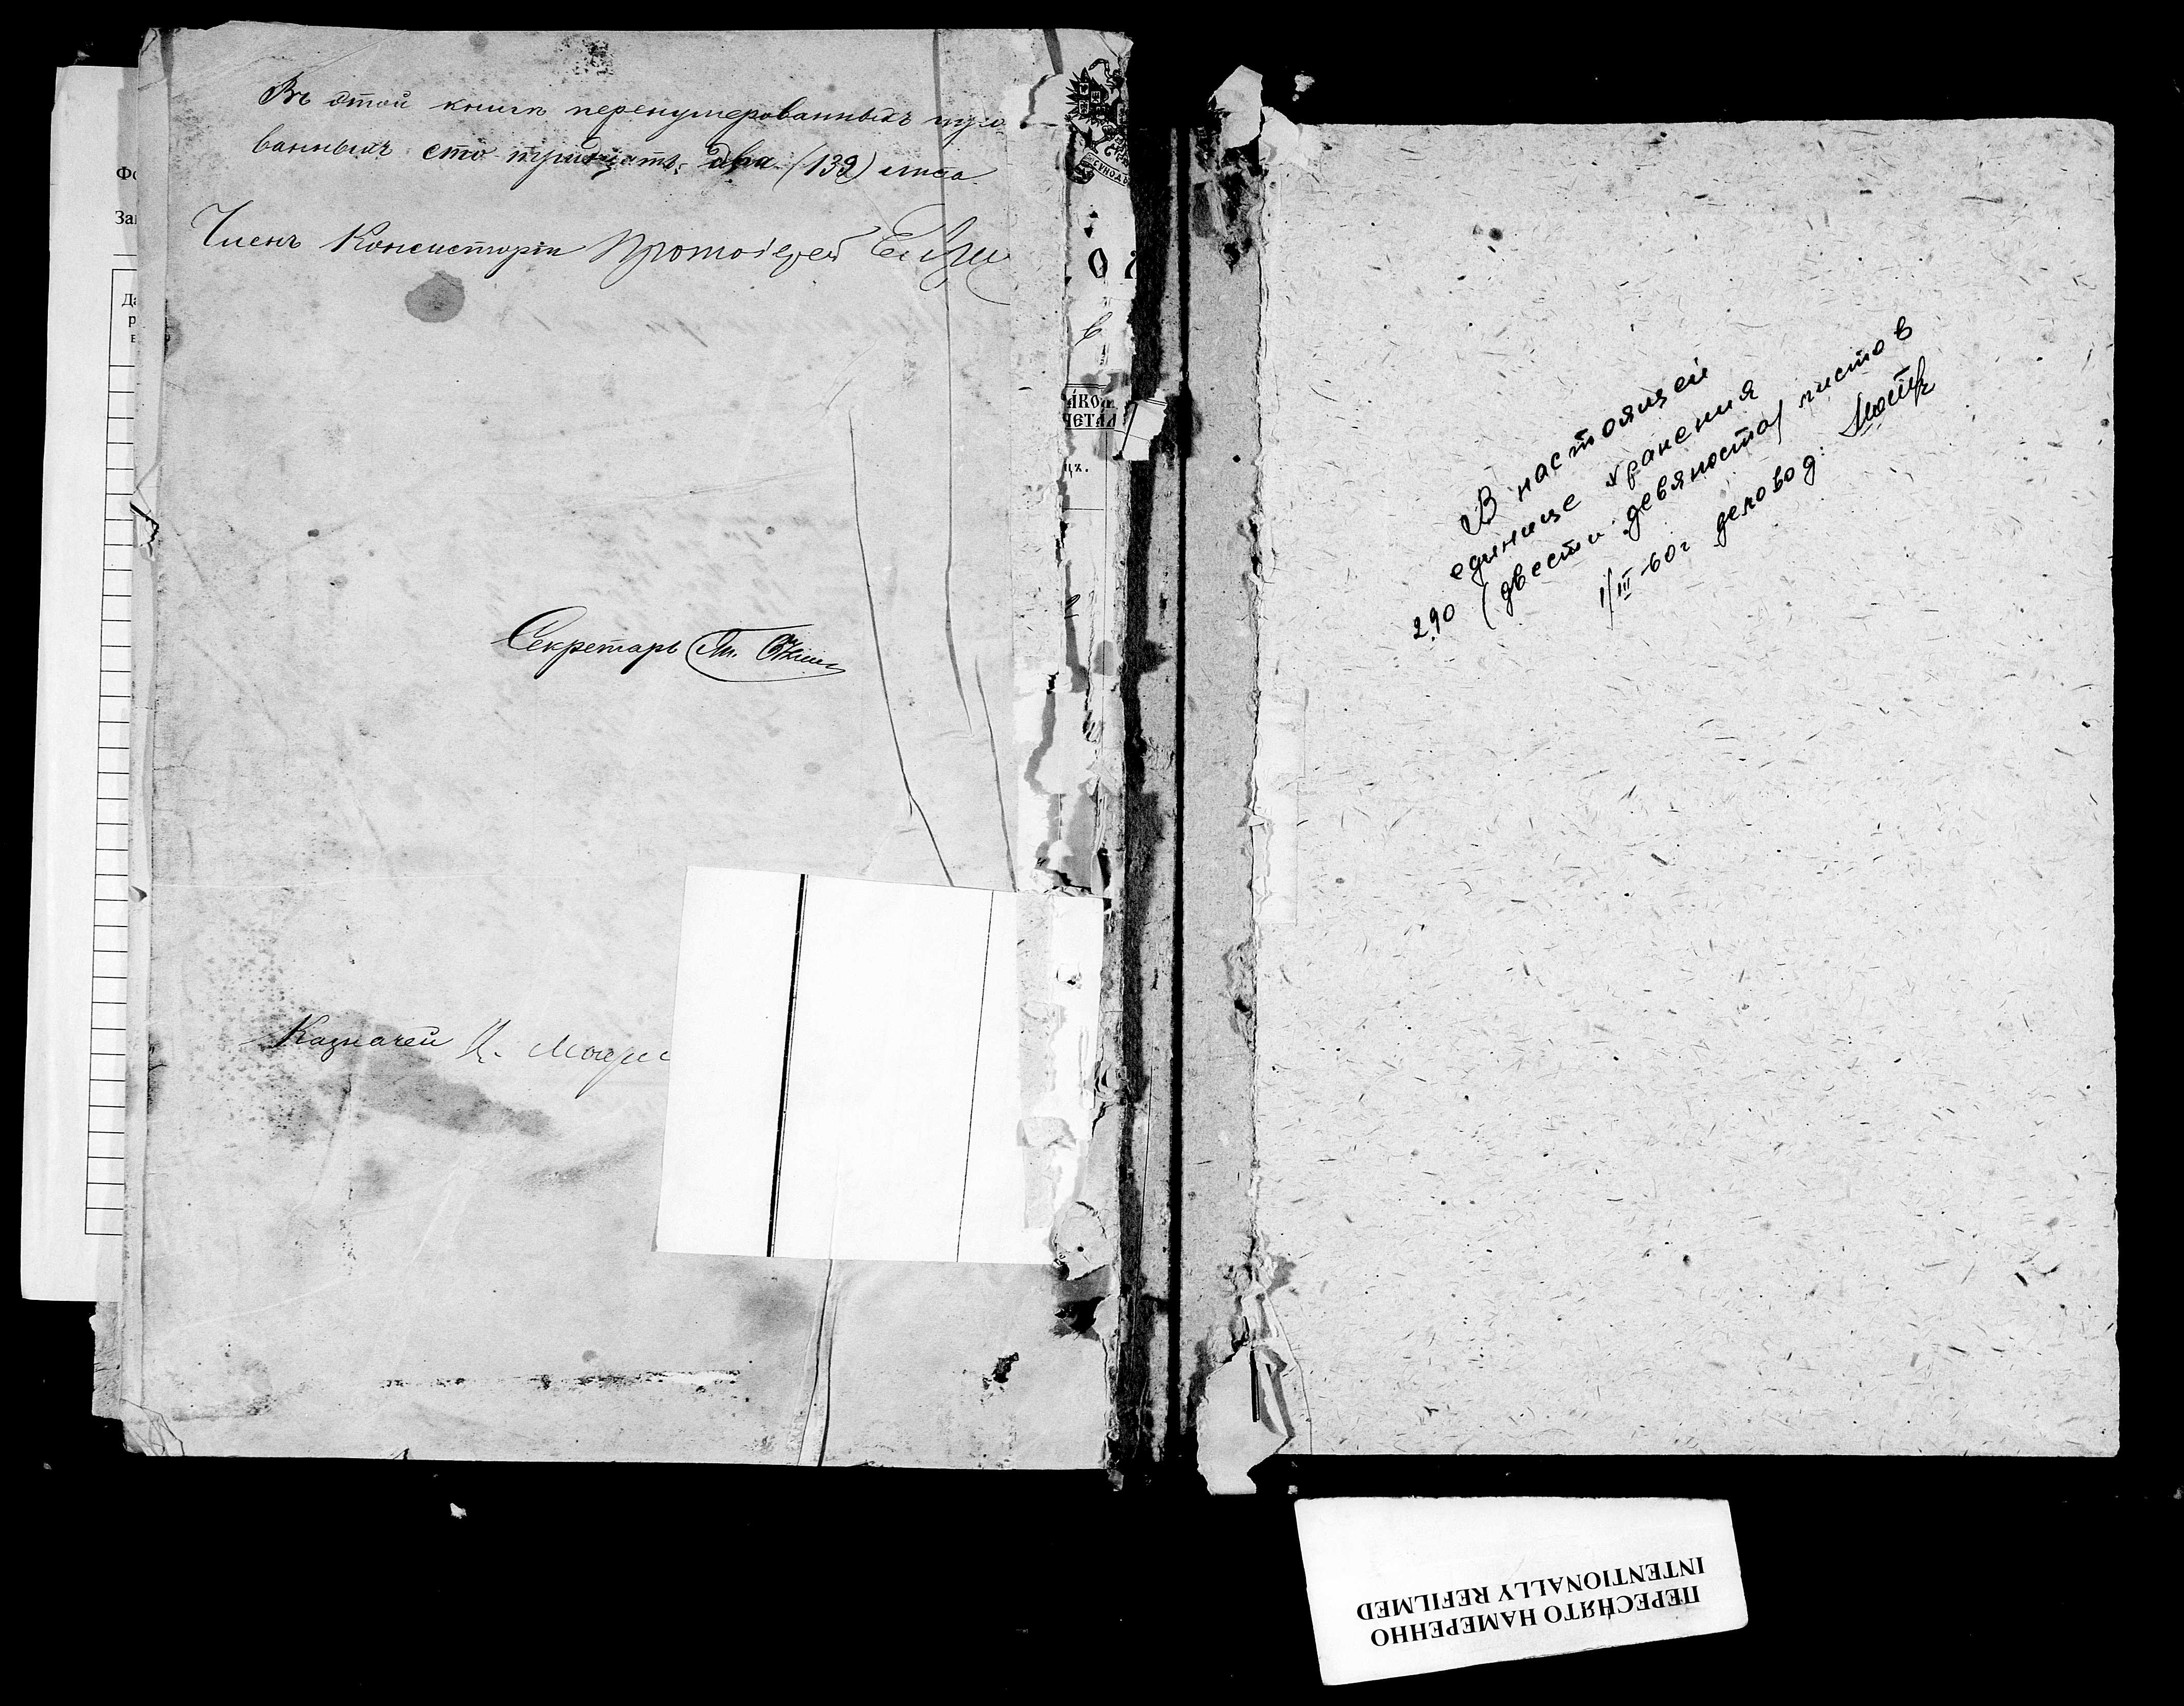 Въ этой книгѣ перенумерованныхъ
ванныхъ сто тридцать два (132) листа.
Членъ Консисторіи Протоіерей
Секретарь
Казначей
Фо
Зап
Да
р
в
СѴНОДА
О
в
ЧЕТАЛ
цъ.
В настоящей
единице хранения
290 (двести девяносто) листов
1/III-60г деловод.
ПЕРЕСНЯТО НАМЕРЕННО
INTENTIONALLY REFILMED